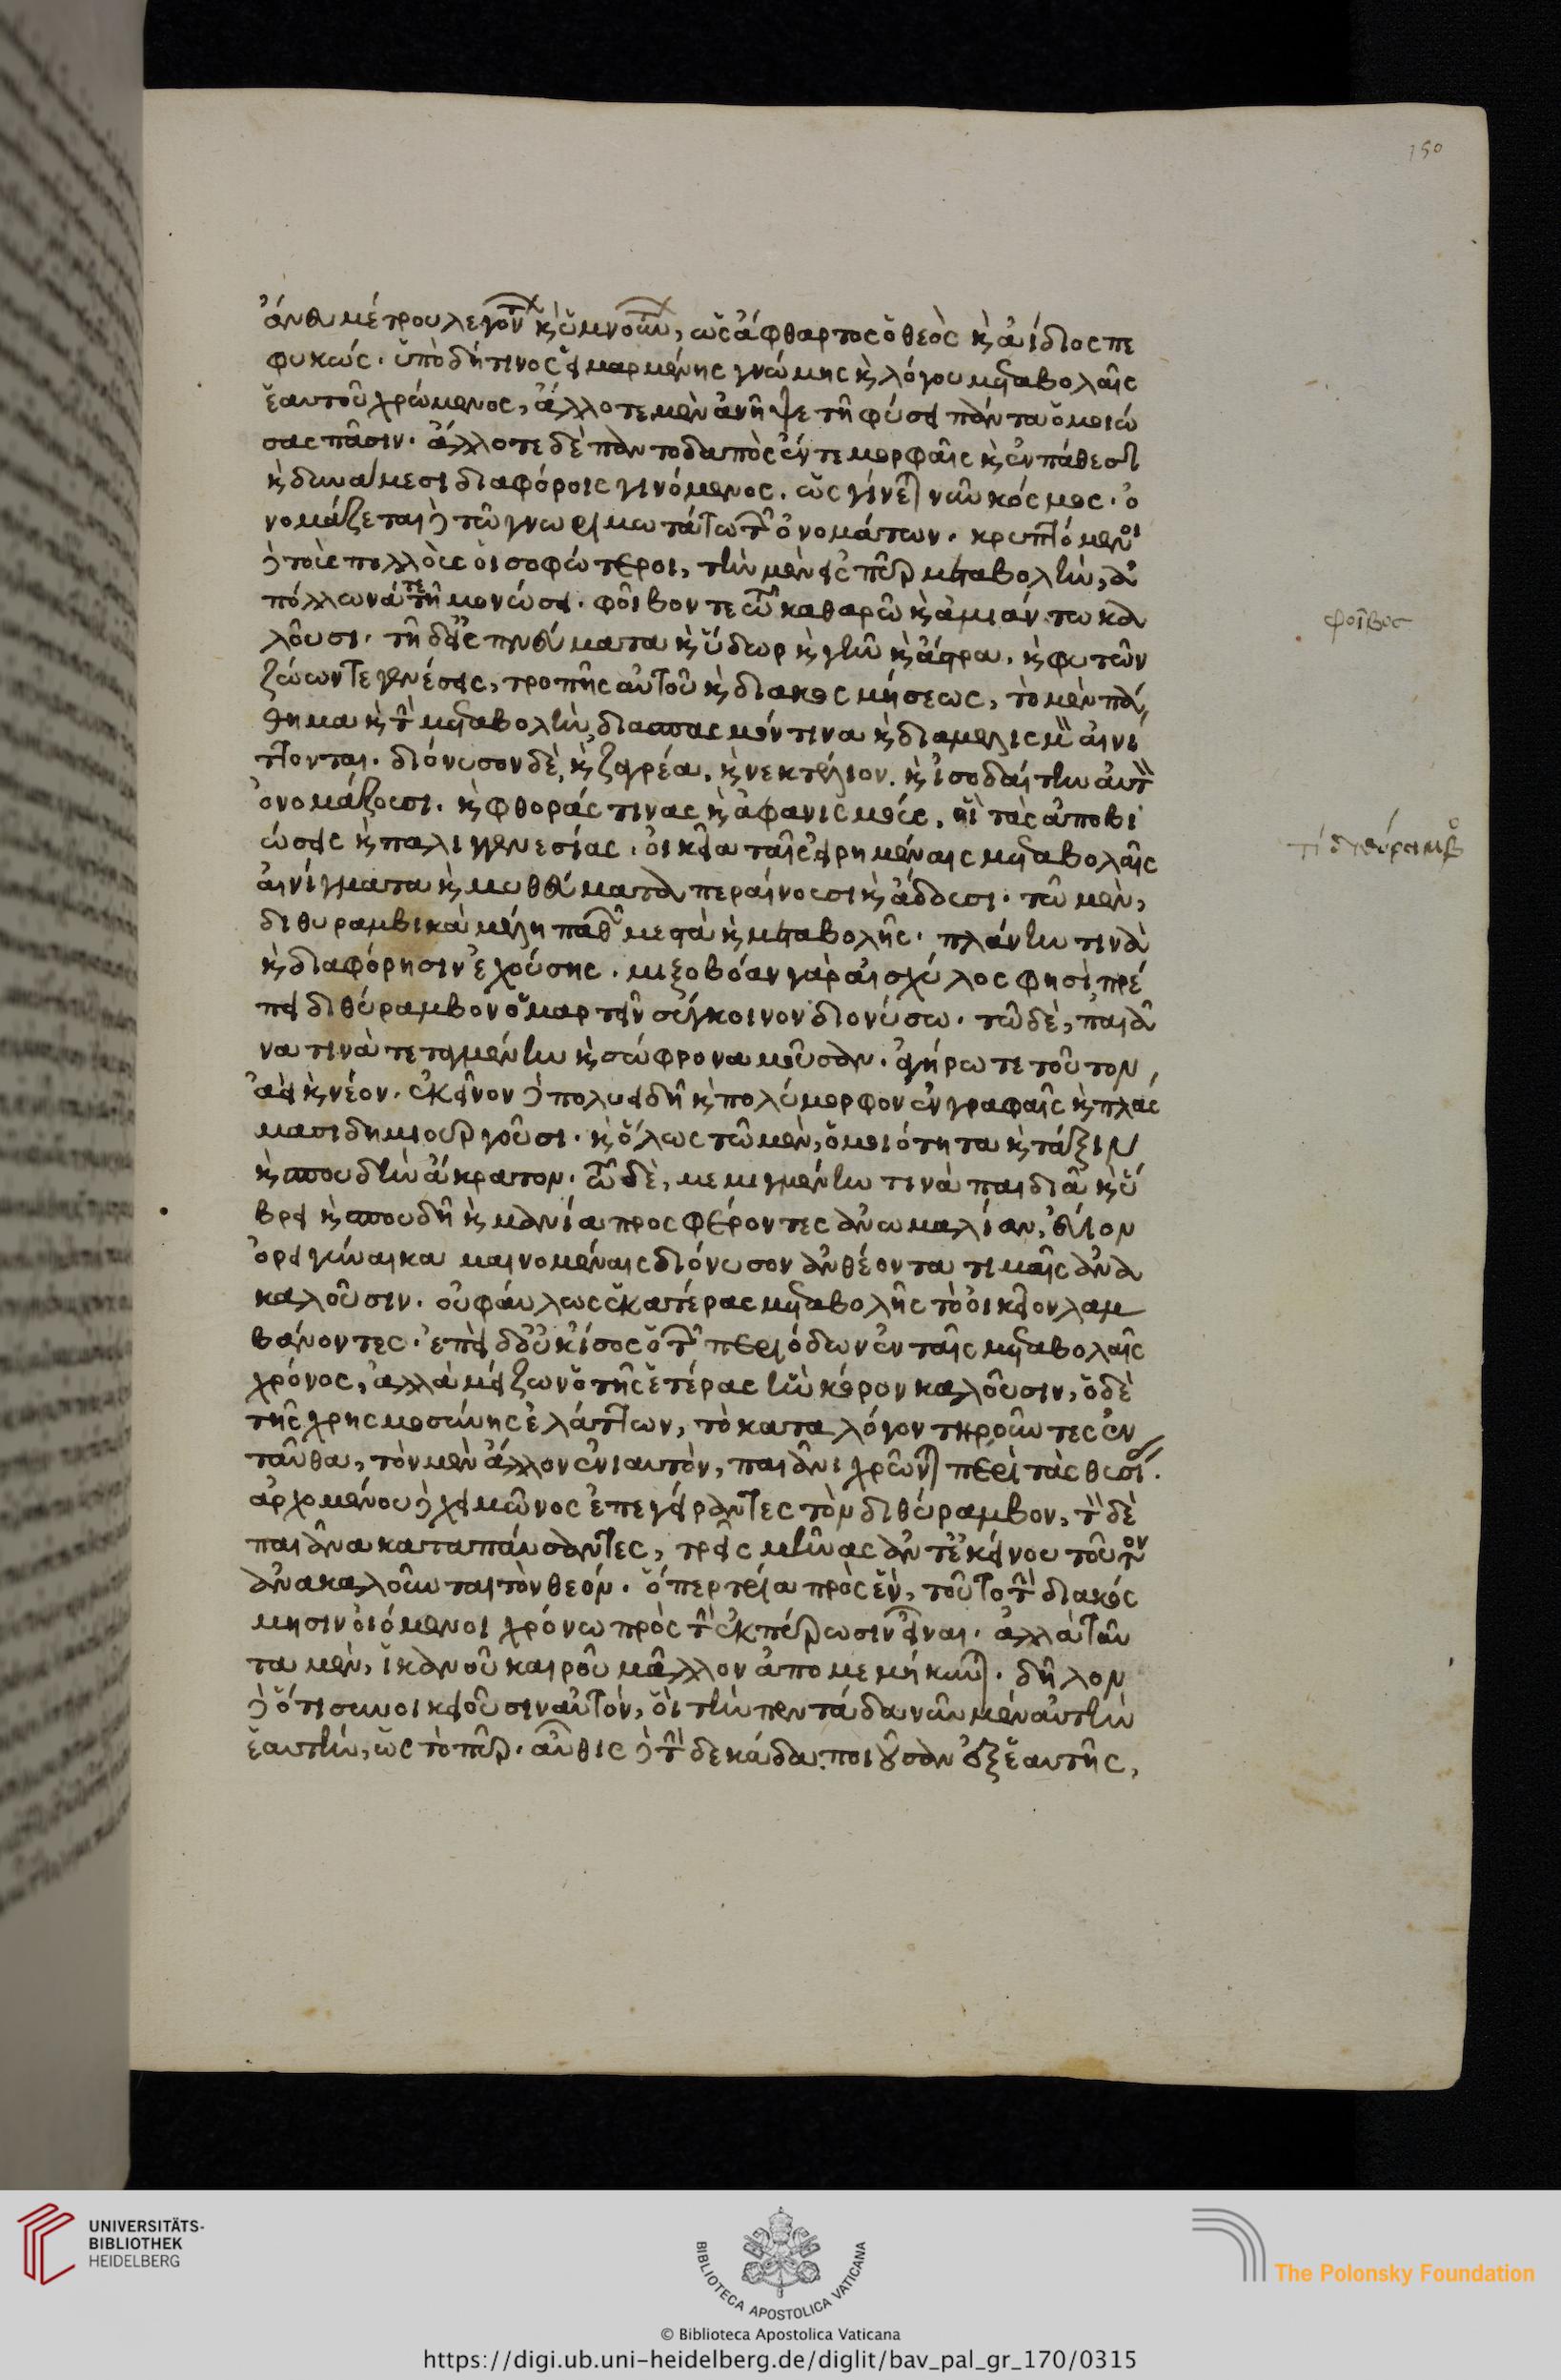 150
ἄνευ μέτρου λεγόντων καὶ ὑμνούντων, ὡς ἄφθαρτος ὁ θεὸς καὶ ἀΐδιος πε
φυκώς. ὑπὸ δή τινος εἱμαρμένης γνώμης καὶ λόγου μεταβολαῖς
ἑαυτοῦ χρώμενος, ἄλλοτε μὲν ἀνῆψε τῇ φύσει πάντα ὁμοιώ
σας πᾶσιν. ἄλλοτε δὲ παντοδαπὸς ἔν τε μορφαῖς καὶ ἐν πάθεσι
καὶ δυνάμεσι διαφόροις γινόμενος. ὡς γίνεται νῦν κόσμος. ὀ
νομάζεται δὲ τῷ γνωριμωτάτῳ τῶν ὀνομάτων. κρυπτόμενοι
δὲ τοὺς πολλοὺς οἱ σοφώτεροι, τὴν μὲν εἰς πῦρ μεταβολὴν, ἀ
πόλλωνά τε τῇ μονώσει. φοῖβον τε τῷ καθαρῷ καὶ ἀμιάντῳ κα
λοῦσι. τῆς δ' εἰς πνεύματα καὶ ὕδωρ καὶ γῆν καὶ ἄστρα. καὶ φυτῶν
ζώων τε γενέσεις, τροπῆς αὐτοῦ καὶ διακοσμήσεως, τὸ μὲν πά
θημα καὶ τὴν μεταβολὴν διασπασμόν τινα καὶ διαμελισμὸν αἰνί
ττονται. διόνυσον δὲ, καὶ ζαγρέα. καὶ νεκτέλιον. καὶ ἰσοδαίτην αὐτὸν
ὀνομάζουσι. καὶ φθοράς τινας καὶ ἀφανισμοὺς. εἶτα τὰς ἀποβι
ώσεις καὶ παλιγγενεσίας. οἰκεῖα ταῖς εἰρημέναις μεταβολαῖς
αἰνίγματα καὶ μυθεύματα περαίνουσι καὶ ἄδουσι. τῷ μὲν,
διθυραμβικὰ μέλη παθῶν μεστὰ καὶ μεταβολῆς. πλάνην τινὰ
καὶ διαφόρησιν ἐχούσης. μιξοβόαν γὰρ αἰσχύλος φησὶ πρέ
πει διθύραμβον ὁμαρτεῖν σύγκοινον διονύσῳ. τῷ δὲ, παιᾶ
να τινὰ τεταγμένην καὶ σώφρονα μοῦσαν. ἀγήρω τε τοῦτον,
ἀεὶ καὶ νέον. ἐκεῖνον δὲ πολυειδῆ καὶ πολύμορφον ἐν γραφαῖς καὶ πλάσ
μασι δημιουργοῦσι. καὶ ὅλως τῷ μὲν, ὁμοιότητα καὶ τάξιν
καὶ σπουδὴν ἄκρατον. τῷ δὲ, μεμιγμένην τινὰ παιδιᾷ καὶ ὕ
βρει καὶ σπουδῇ καὶ μανίᾳ προσφέροντες ἀνωμαλίαν, εὔιον
ὀρσιγύναικα μαινομέναις διόνυσον ἀνθέοντα τιμαῖς ἀνα
καλοῦσιν. οὐ φαύλως ἑκατέρας μεταβολῆς τὸ οἰκεῖον λαμ
βάνοντες. ἐπεὶ δ' οὐκ ἴσος ὁ τῶν περιόδων ἐν ταῖς μεταβολαῖς
χρόνος, ἀλλὰ μείζων ὁ τῆς ἑτέρας ἣν κόρον καλοῦσιν, ὁ δὲ
τῆς χρησμοσύνης ἐλάττων, τὸ κατα λόγον τηροῦντες ἐν
ταῦθα, τὸν μὲν ἄλλον ἐνιαυτὸν, παιᾶνι χρῶνται περὶ τὰς θυσίας.
ἀρχομένου δὲ χειμῶνος ἐπεγείραντες τὸν διθύραμβον, τὸν δὲ
παιᾶνα καταπαύσαντες, τρεῖς μῆνας ἀντ' ἐκείνου τοῦτον
ἀνακαλοῦνται τὸν θεόν. ὅπερ τρία πρὸς ἓν, τοῦτο τὴν διακόσ
μησιν οἰόμενοι χρόνῳ πρὸς τὴν ἐκπύρωσιν εἶναι. ἀλλὰ ταῦ
τα μὲν, ἱκανοῦ καιροῦ μᾶλλον ἀπομεμήκυνται. δῆλον
δὲ ὅτι συνοικειοῦσιν αὐτὸν, ὅτι τὴν πεντάδα νῦν μὲν αὐτὴν
ἑαυτὴν, ὡς τὸ πῦρ. αὖθις δὲ τὴν δεκάδα ποιοῦσαν ἐξ ἑαυτῆς,
φοῖβος
τί διθύραμβος
UNIVERSITÄTS-
BIBLIOTHEK
HEIDELBERG
BIBLIOTECA APOSTOLICA VATICANA
The Polonsky Foundation
© Biblioteca Apostolica Vaticana
https://digi.ub.uni-heidelberg.de/diglit/bav_pal_gr_170/0315